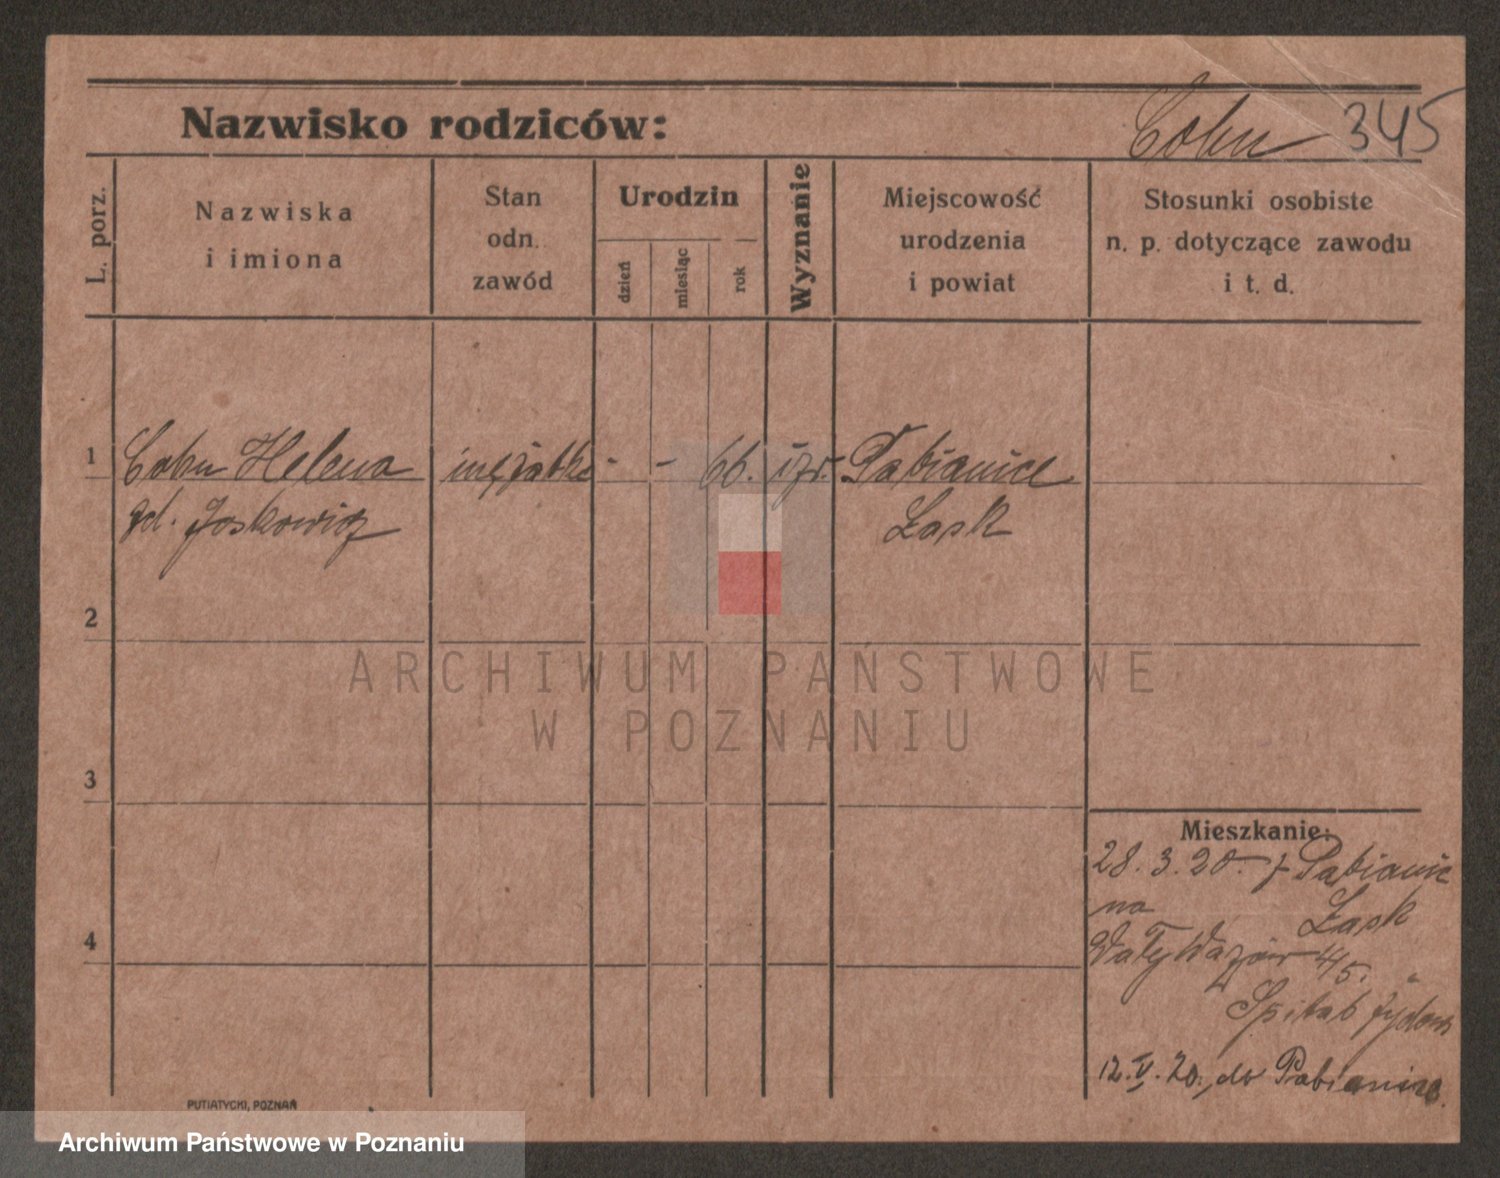 Nazwisko rodziców: Cohn 345
L. porz.
Nazwiska
i imiona
Stan
odn.
zawód
Urodzin
dzień
miesiąc
rok
Wyznanie
Miejscowość
urodzenia
i powiat
Stosunki osobiste
n. p. dotyczące zawodu
i t. d.
1 Cohn Helena mężatka - - 66. izr. Pabianice
Łask
2
3
4
Mieszkanie:
28. 3. 20. z Pabianic
na Łask
Wały Wazów 4/5.
12. V. 20. do Pabianice.
PUTIATYCKI, POZNAŃ
ARCHIWUM PAŃSTWOWE
W POZNANIU
Archiwum Państwowe w Poznaniu